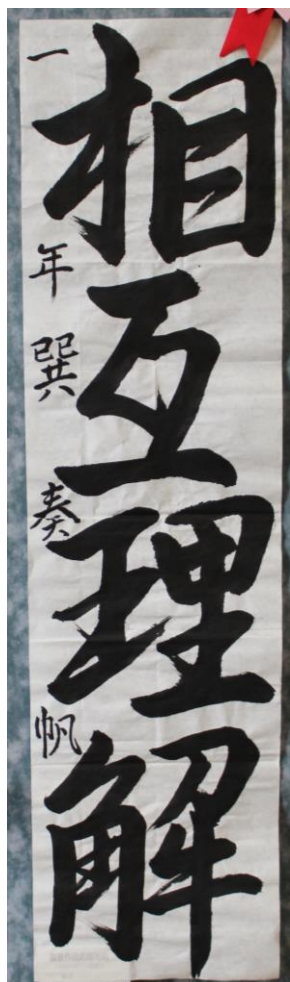 相互理解
一年 巽 奏帆